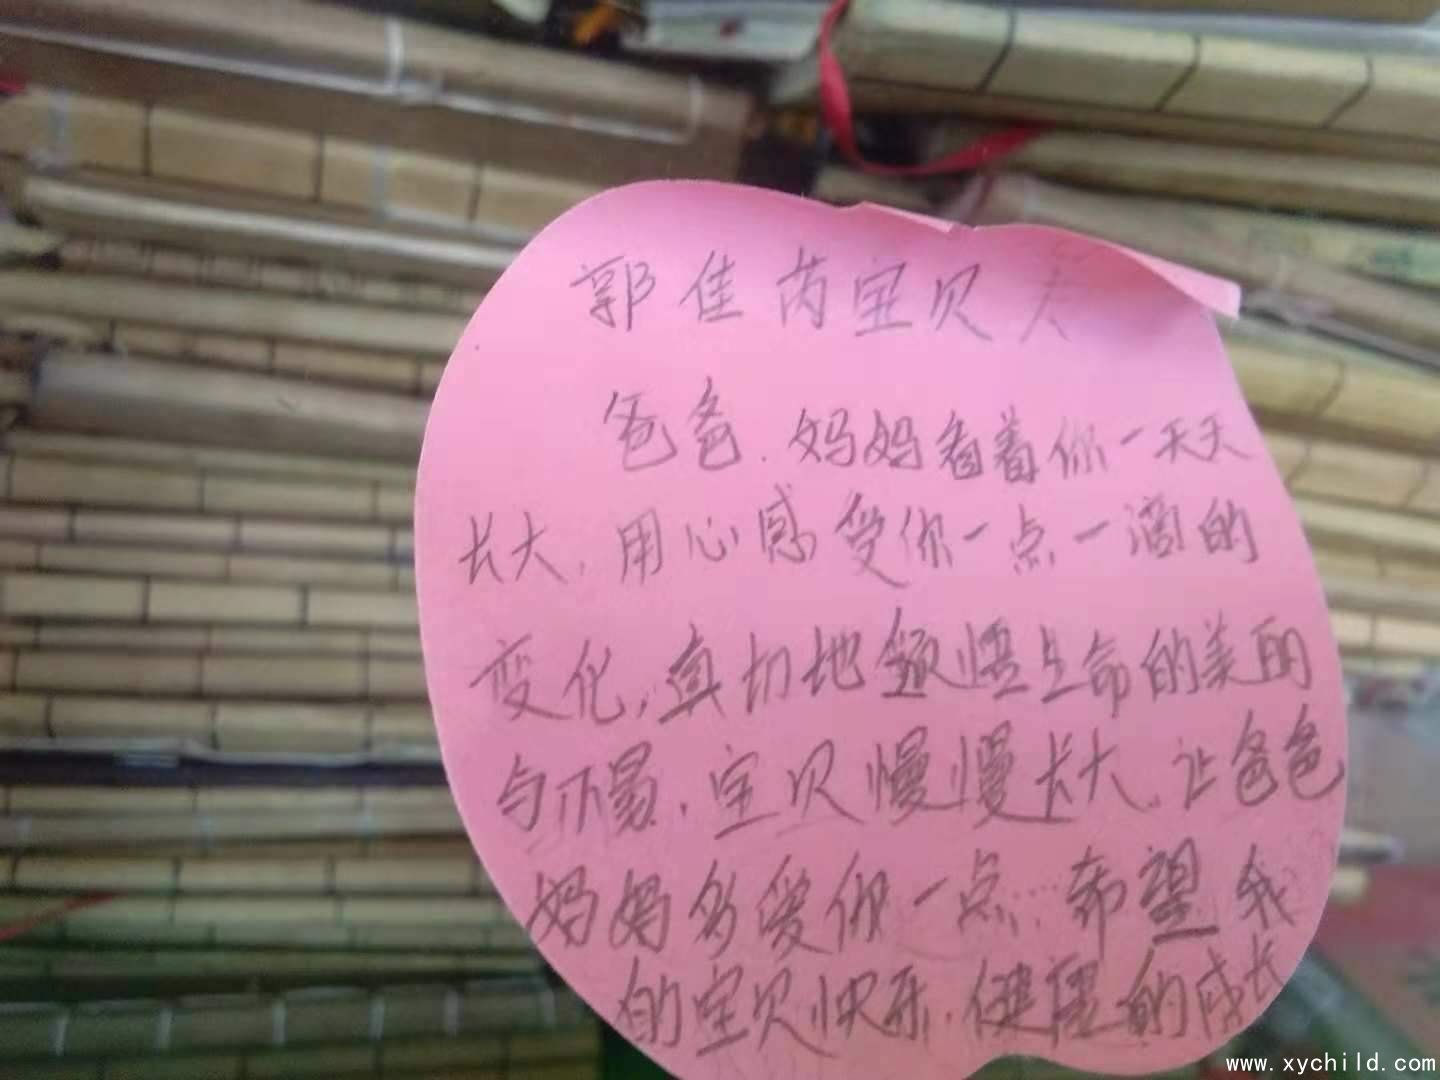 郭佳芮宝贝
爸爸.妈妈看着你一天天
长大.用心感受你一点一滴的
变化,真切地领悟生命的美丽
与不易.宝贝慢慢长大.让爸爸
妈妈多爱你一点...希望我
的宝贝快乐.健康的成长
www.xychild.com